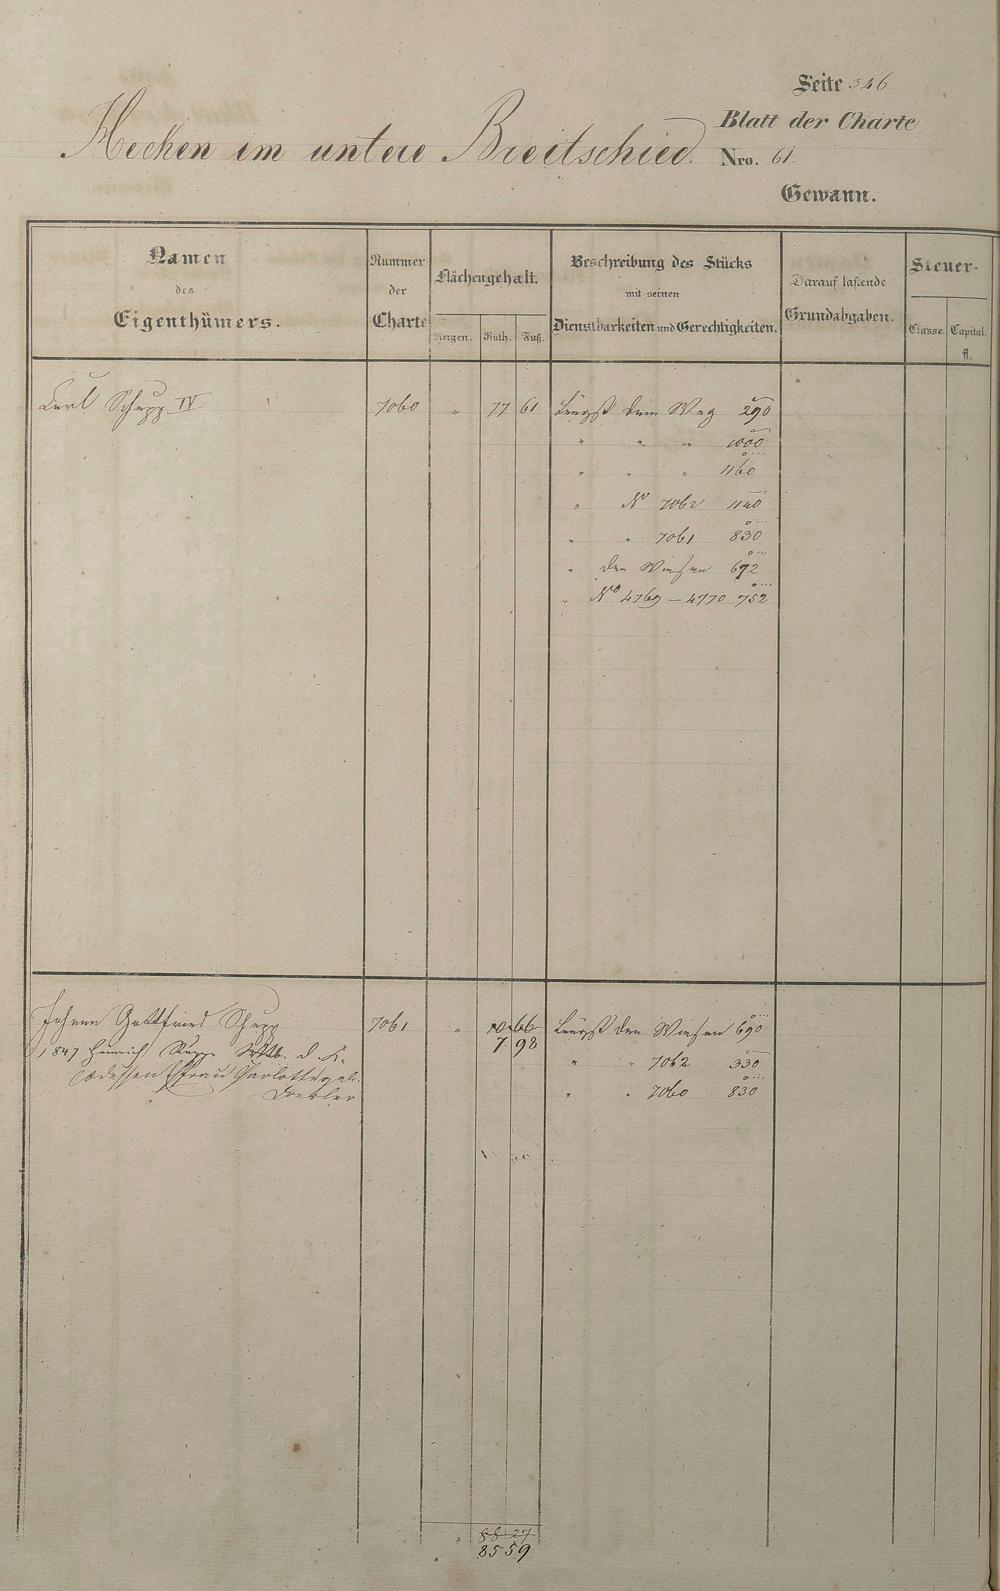 Seite 346
Blatt der Charte
Hecken im untere Breitschied. Nro. 61.
Gewann.
Namen des Eigenthümers.
Nummer der Charte
Flächengehalt.
Morgen. Ruth. Fuß.
Beschreibung des Stücks mit seinen Dienstbarkeiten und Gerechtigkeiten.
Darauf lastende Grundabgaben.
Steuer-
Classe. Capital. fl.
Carl Schupp IV 7060 " 77 61 Längst dem Weg 290
" " " 1000
" " " 1160
" No 7062 1140
" " 7061 830
" den Wiesen 692
" No 4769 – 4770 752
Johann Gottfried Schupp 7061 " 10 66 Längst den Wiesen 690
7 98
1847 Heinrich
" " 7062 330
dessen Ehefrau Charlotte
" " 7060 830
" 88 27
85 59